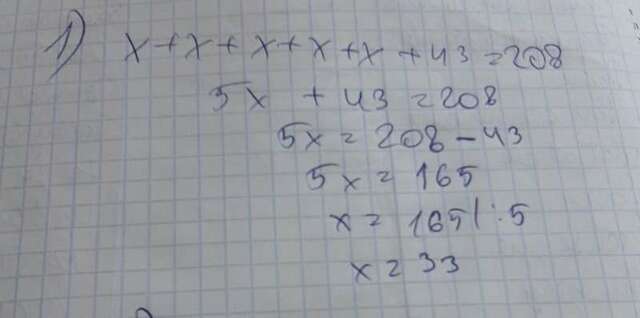 1) x + x + x + x + x + 43 = 208
5x + 43 = 208
5x = 208 - 43
5x = 165
x = 165 | : 5
x = 33